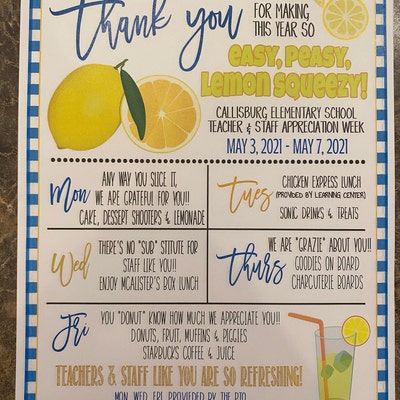 thank you
FOR MAKING
THIS YEAR SO
EASY, PEASY,
LEMON SQUEEZY!
CALLISBURG ELEMENTARY SCHOOL
TEACHER & STAFF APPRECIATION WEEK
MAY 3, 2021 - MAY 7, 2021
Mon
ANY WAY YOU SLICE IT,
WE ARE GRATEFUL FOR YOU!!
CAKE, DESSERT SHOOTERS & LEMONADE
Tues
CHICKEN EXPRESS LUNCH
(PROVIDED BY LEARNING CENTER)
SONIC DRINKS & TREATS
Wed
THERE'S NO "SUB" STITUTE FOR
STAFF LIKE YOU!!
ENJOY MCALISTER'S BOX LUNCH
Thurs
WE ARE "GRAZIE" ABOUT YOU!!
GOODIES ON BOARD
CHARCUTERIE BOARDS
Fri
YOU "DONUT" KNOW HOW MUCH WE APPRECIATE YOU!!
DONUTS, FRUIT, MUFFINS & PIGGIES
STARBUCKS COFFEE & JUICE
TEACHERS & STAFF LIKE YOU ARE SO REFRESHING!
MON, WED, FRI, PROVIEDED BY THE PTO